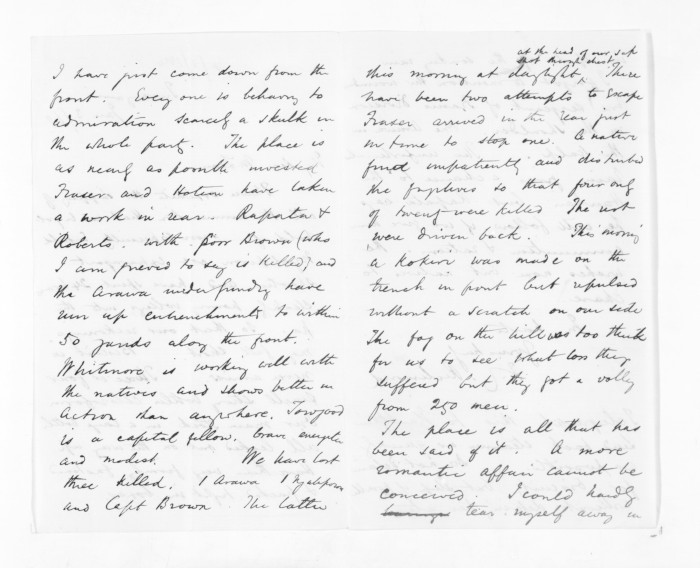 I have just come down from the
front. Every one is behaving to
admiration scarcely a skulk in
the whole party. The place is
as nearly as possible invested
Fraser and Hotene have taken
a work in rear. Rapata &
Roberts. with. poor Brown (who
I am grieved to say is killed) and
the Arawa under Gundry have
run up entrenchments to within
50 yards along the front.
Whitmore is working well with
the natives and shows better in
action than anywhere. Towgood
is a capital fellow. brave energetic
and modest. We have lost
three killed. 1 Arawa 1 Ngatiporou
and Capt Brown. The latter
at the head of our sap
shot through chest.
this morning at daylight. There
have been two attempts to escape
Fraser arrived in the rear just
in time to stop one. A native
fired impatiently and disturbed
the fugitives so that four only
of twenty were killed The rest
were driven back. This morning
a kokiri was made on the
trench in front but repulsed
without a scratch on our side
The fog on the hill was too thick
for us to see what loss they
suffered but they got a volley
from 250 men.
The place is all that has
been said of it. A more
romantic affair cannot be
conceived. I could hardly
tear myself away in